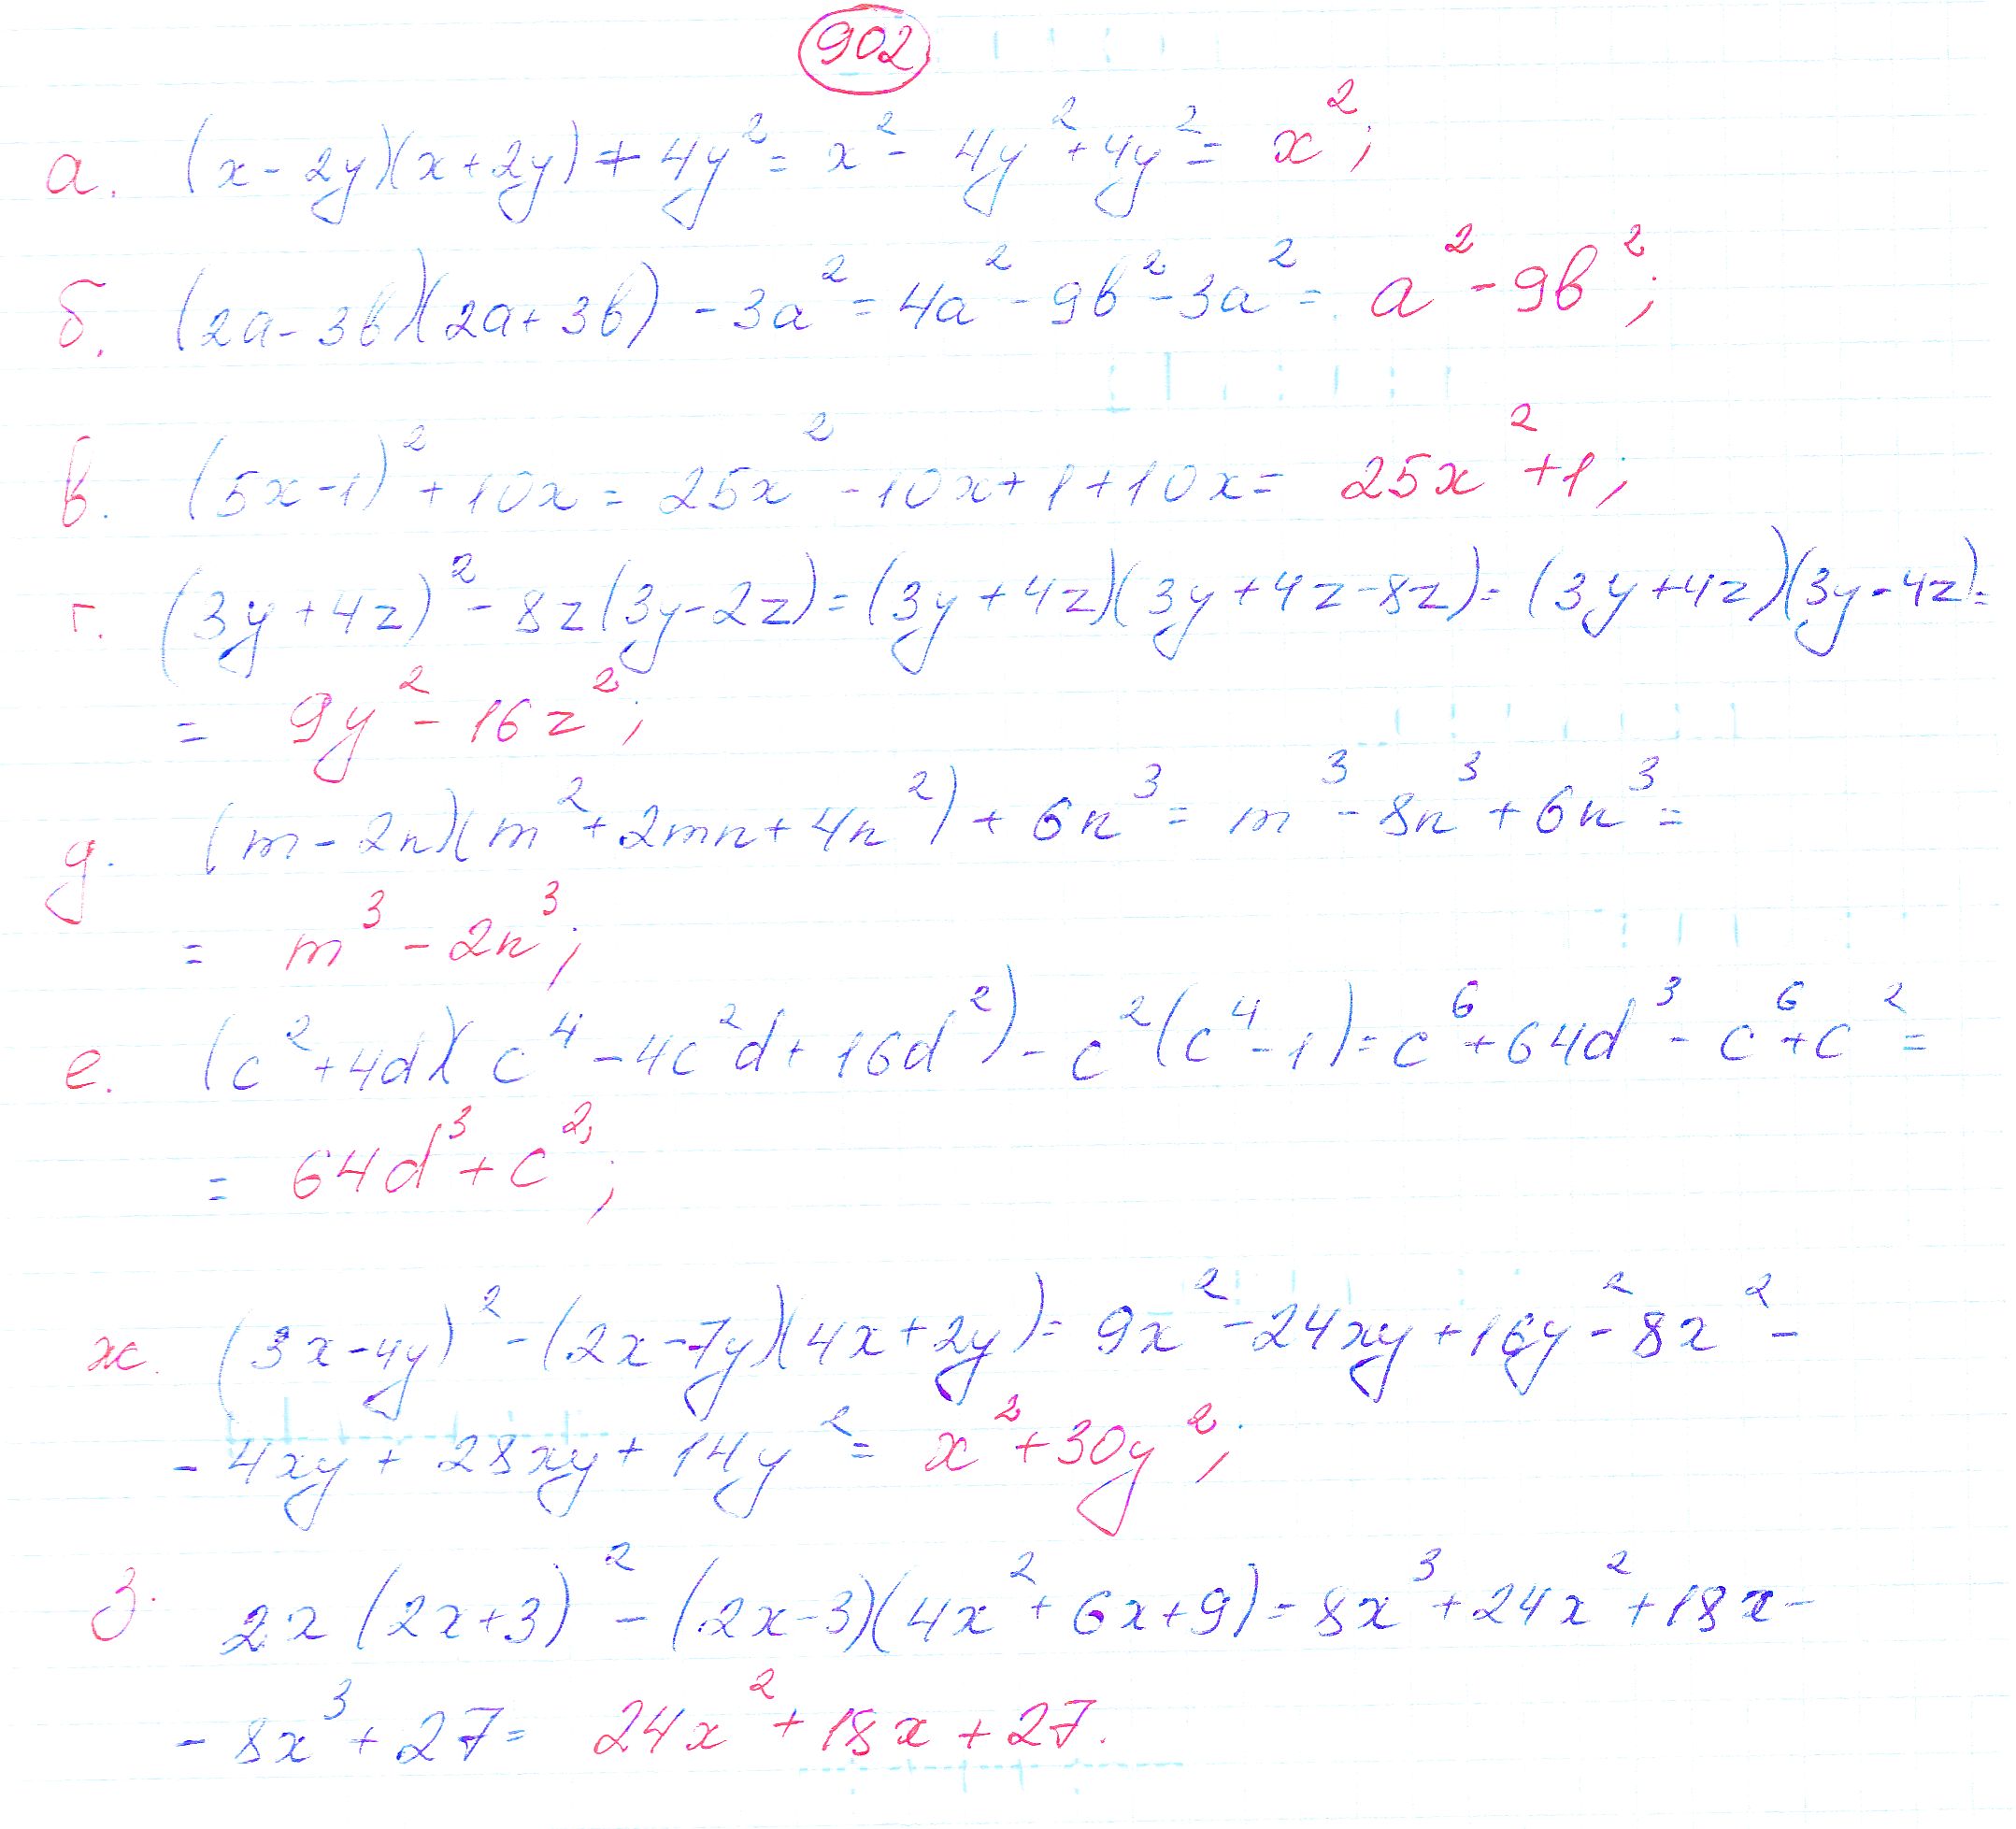 902
а. (x-2y)(x+2y)+4y²= x²- 4y²+4y²= x²;
б. (2a-3b)(2a+3b) -3a²= 4a²-9b²-3a²= a²-9b²;
в. (5x-1)²+10x= 25x²-10x+1+10x= 25x²+1;
г. (3y+4z)²-8z(3y-2z)=(3y+4z)(3y+4z-8z)=(3y+4z)(3y-4z)=
= 9y²-16z²;
д. (m-2n)(m²+2mn+4n²)+6n³= m³-8n³+6n³=
= m³-2n³;
е. (c²+4d)(c⁴-4c²d+16d²)-c²(c⁴-1)=c⁶+64d³-c⁶+c²=
= 64d³+c²;
ж. (3x-4y)²-(2x-7y)(4x+2y)= 9x²-24xy+16y²-8x²-
-4xy+28xy+14y²= x²+30y²;
з. 2x(2x+3)²-(2x-3)(4x²+6x+9)=8x³+24x²+18x-
-8x³+27= 24x²+18x+27.